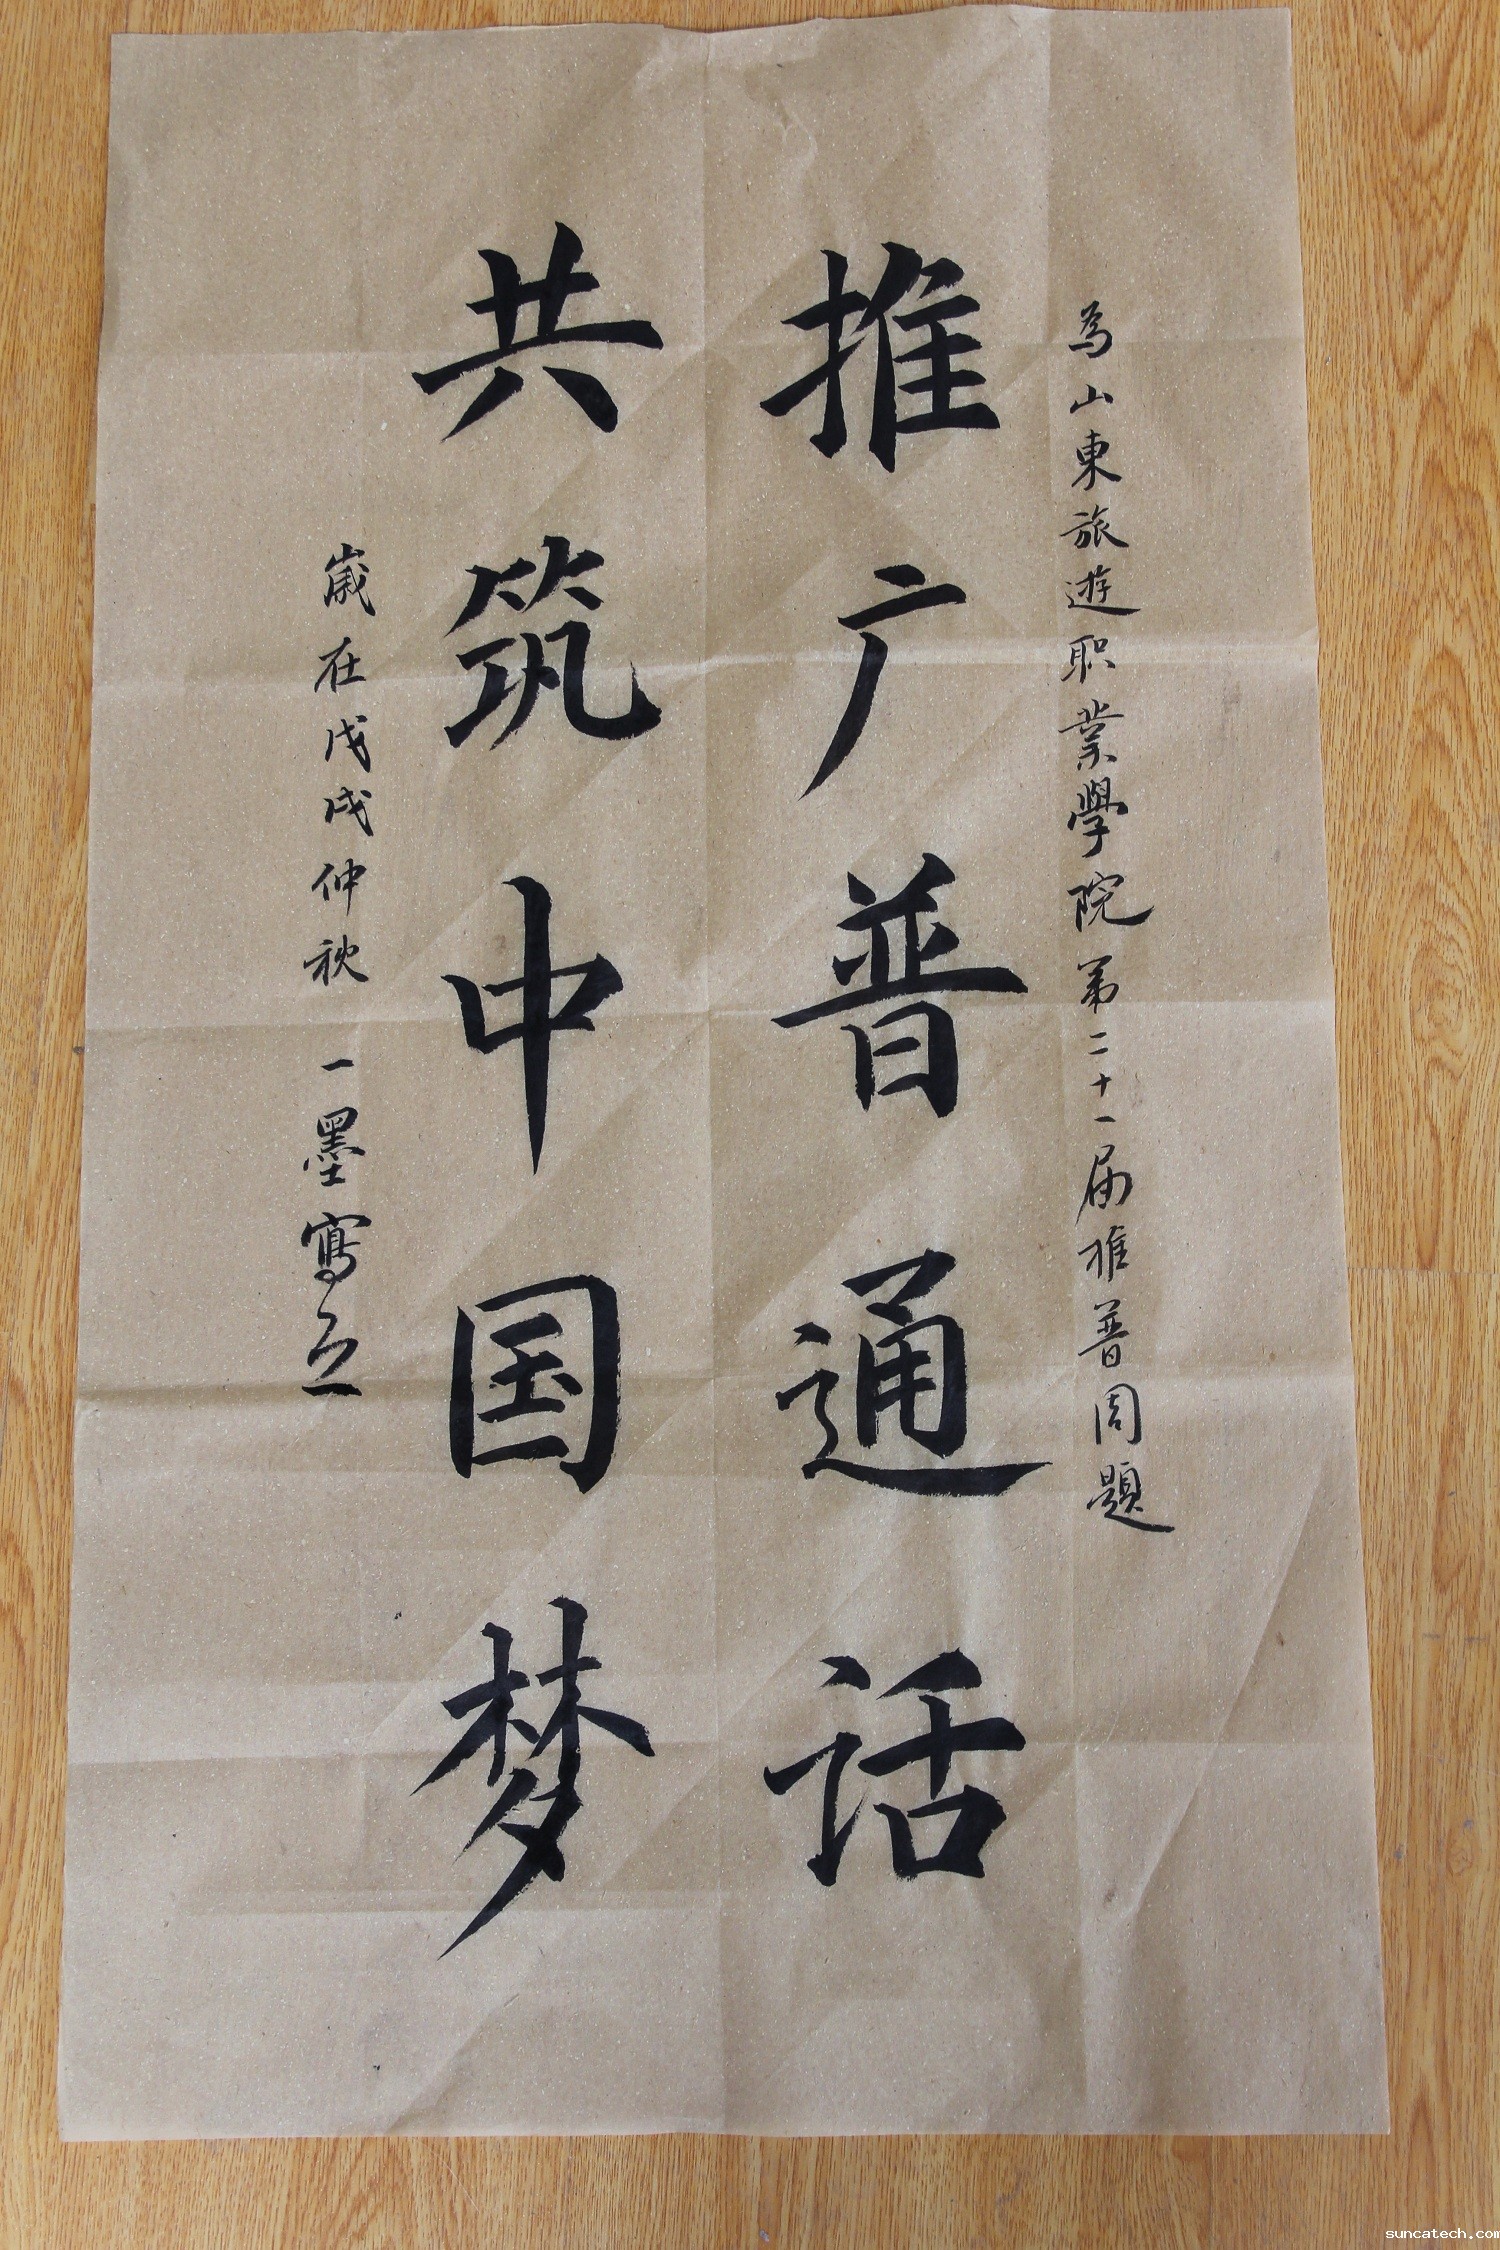 為山東旅遊职業學院第二十一届推普周題
推广普通话
共筑中国梦
歲在戊戌仲秋 一墨寫
suncatech.com